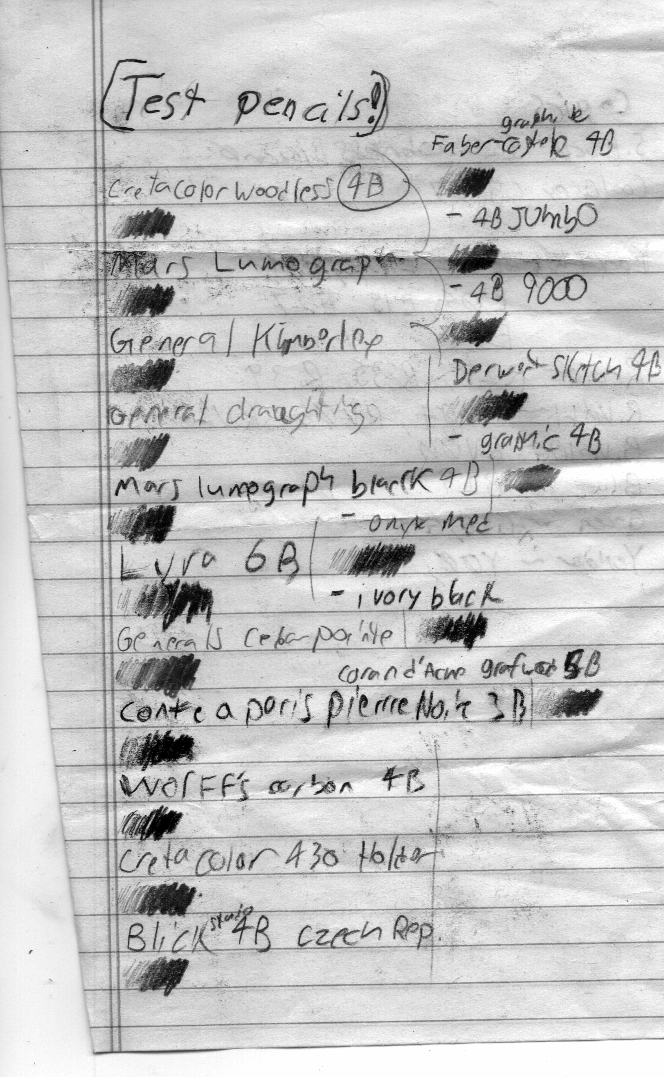 (Test pencils!)
Cretacolor woodless 4B
Mars Lumograph
General Kimberley
General draughting
Mars lumograph black 4B
Lyra 6B
Generals
Conte a paris pierre Noir 3B
Wolff's carbon 4B
Cretacolor 430 Holder
Blick studio 4B czech Rep.
graphite
Faber-castell 4B
- 4B JUmbO
- 4B 9000
Derwent Sketch 4B
- graphic 4B
- onyx med
- ivory black
grafwood 5B